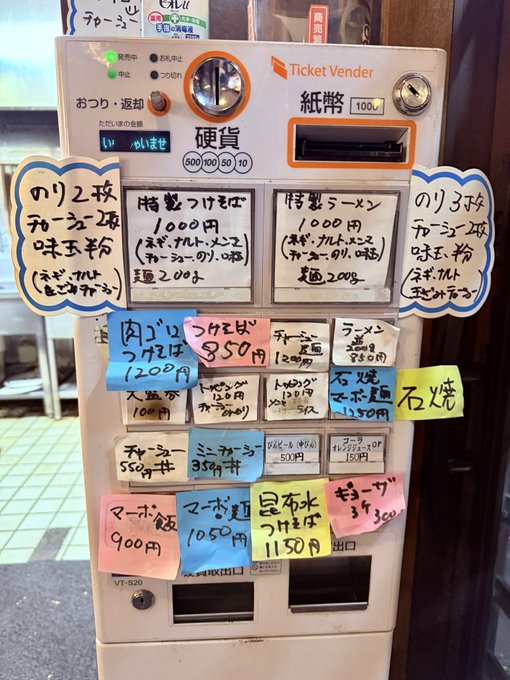 チャーシュー
手指の消毒液
商売繁
発売中
お札中止
中止
つり切れ
Ticket Vender
おつり・返却
紙幣
1000
ただいまの金額
硬貨
500 100 50 10
のり2枚
チャーシュー2枚
味玉粉
(ネギ、ナルト
特製つけそば
1000円
(ネギ、ナルト、メンマ
チャーシュー、のり、味玉)
麺200g
特製ラーメン
1000円
(ネギ、ナルト、メンマ
チャーシュー、のり、味玉)
麺200g
のり3枚
チャーシュー2枚
味玉粉
(ネギ、ナルト
肉ゴロ
つけそば
1200円
つけそば
850円
チャーシュー
麺
1200円
ラーメン
麺200g
850円
大盛券
100円
トッピング
120円
チャーシュー
のり
トッピング
120円
メンマ
ライス
石焼
マーボ麺
1250円
石焼
チャーシュー
550円丼
ミニチャーシュー
350円丼
びんビール(中びん)
500円
コーラor
オレンジジュース
150円
マーボ飯
900円
マーボ麺
1050円
昆布水
つけそば
1150円
ギョーザ
3ケ
300円
取出口
出口
VT-S20